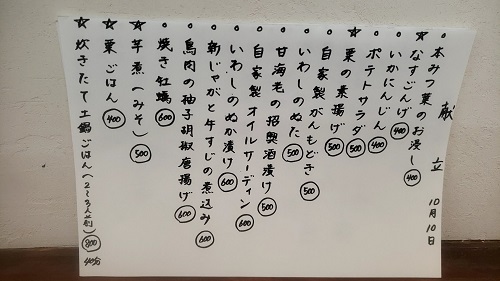 献立 10月10日
・本みつ葉のお浸し 400
☆なすごんげ 400
・いかにんじん 400
・ポテトサラダ 500
☆栗の素揚げ 500
・自家製がんもどき 500
・いわしのぬた 500
・甘海老の紹興酒漬け 500
・自家製オイルサーディン 600
・いわしのぬか漬け 600
・新じゃがと牛すじの煮込み 600
・鳥肉の柚子胡椒唐揚げ 600
・焼き牡蠣 600
☆芋煮(みそ) 500
☆栗ごはん 400
☆炊きたて土鍋ごはん(2〜3人前) 800 40分